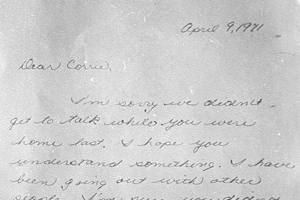 April 9, 1971
Dear Corrie,
I'm sorry we didn't
get to talk while you were
home last. I hope you
understand something. I have
been going out with other
people. I'm sure you did not